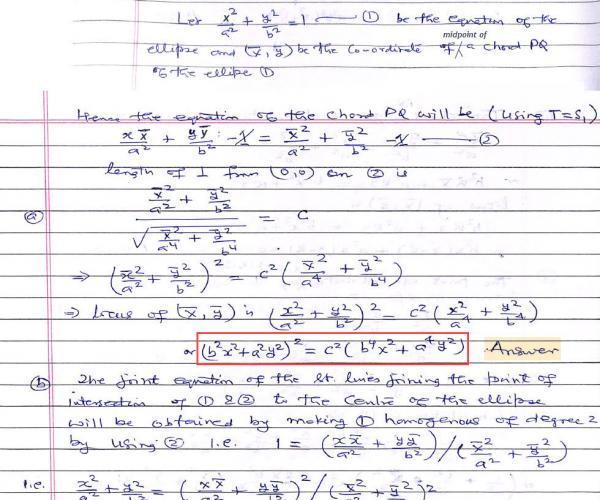 Let x²/a² + y²/b² = 1 — ① be the equation of the
ellipse and (x̄, ȳ) be the co-ordinate of midpoint of a chord PQ
of the ellipse ①
Hence the equation of the chord PQ will be (using T=S₁)
x x̄/a² + y ȳ/b² - 1 = x̄²/a² + ȳ²/b² - 1 — ②
length of ⊥ from (0,0) on ② is
(a) (x̄²/a² + ȳ²/b²) / √(x̄²/a⁴ + ȳ²/b⁴) = c
⇒ (x̄²/a² + ȳ²/b²)² = c² (x̄²/a⁴ + ȳ²/b⁴)
⇒ locus of (x̄, ȳ) is (x²/a² + y²/b²)² = c² (x²/a⁴ + y²/b⁴)
or (b²x²+a²y²)² = c² (b⁴x² + a⁴y²) Answer
(b) The joint equation of the st. lines joining the point of
intersection of ① & ② to the centre of the ellipse
will be obtained by making ① homogenous of degree 2
by using ② i.e. 1 = (x x̄/a² + y ȳ/b²) / (x̄²/a² + ȳ²/b²)
i.e. x²/a² + y²/b² = (x x̄/a² + y ȳ/b²)² / (x̄²/a² + ȳ²/b²)²